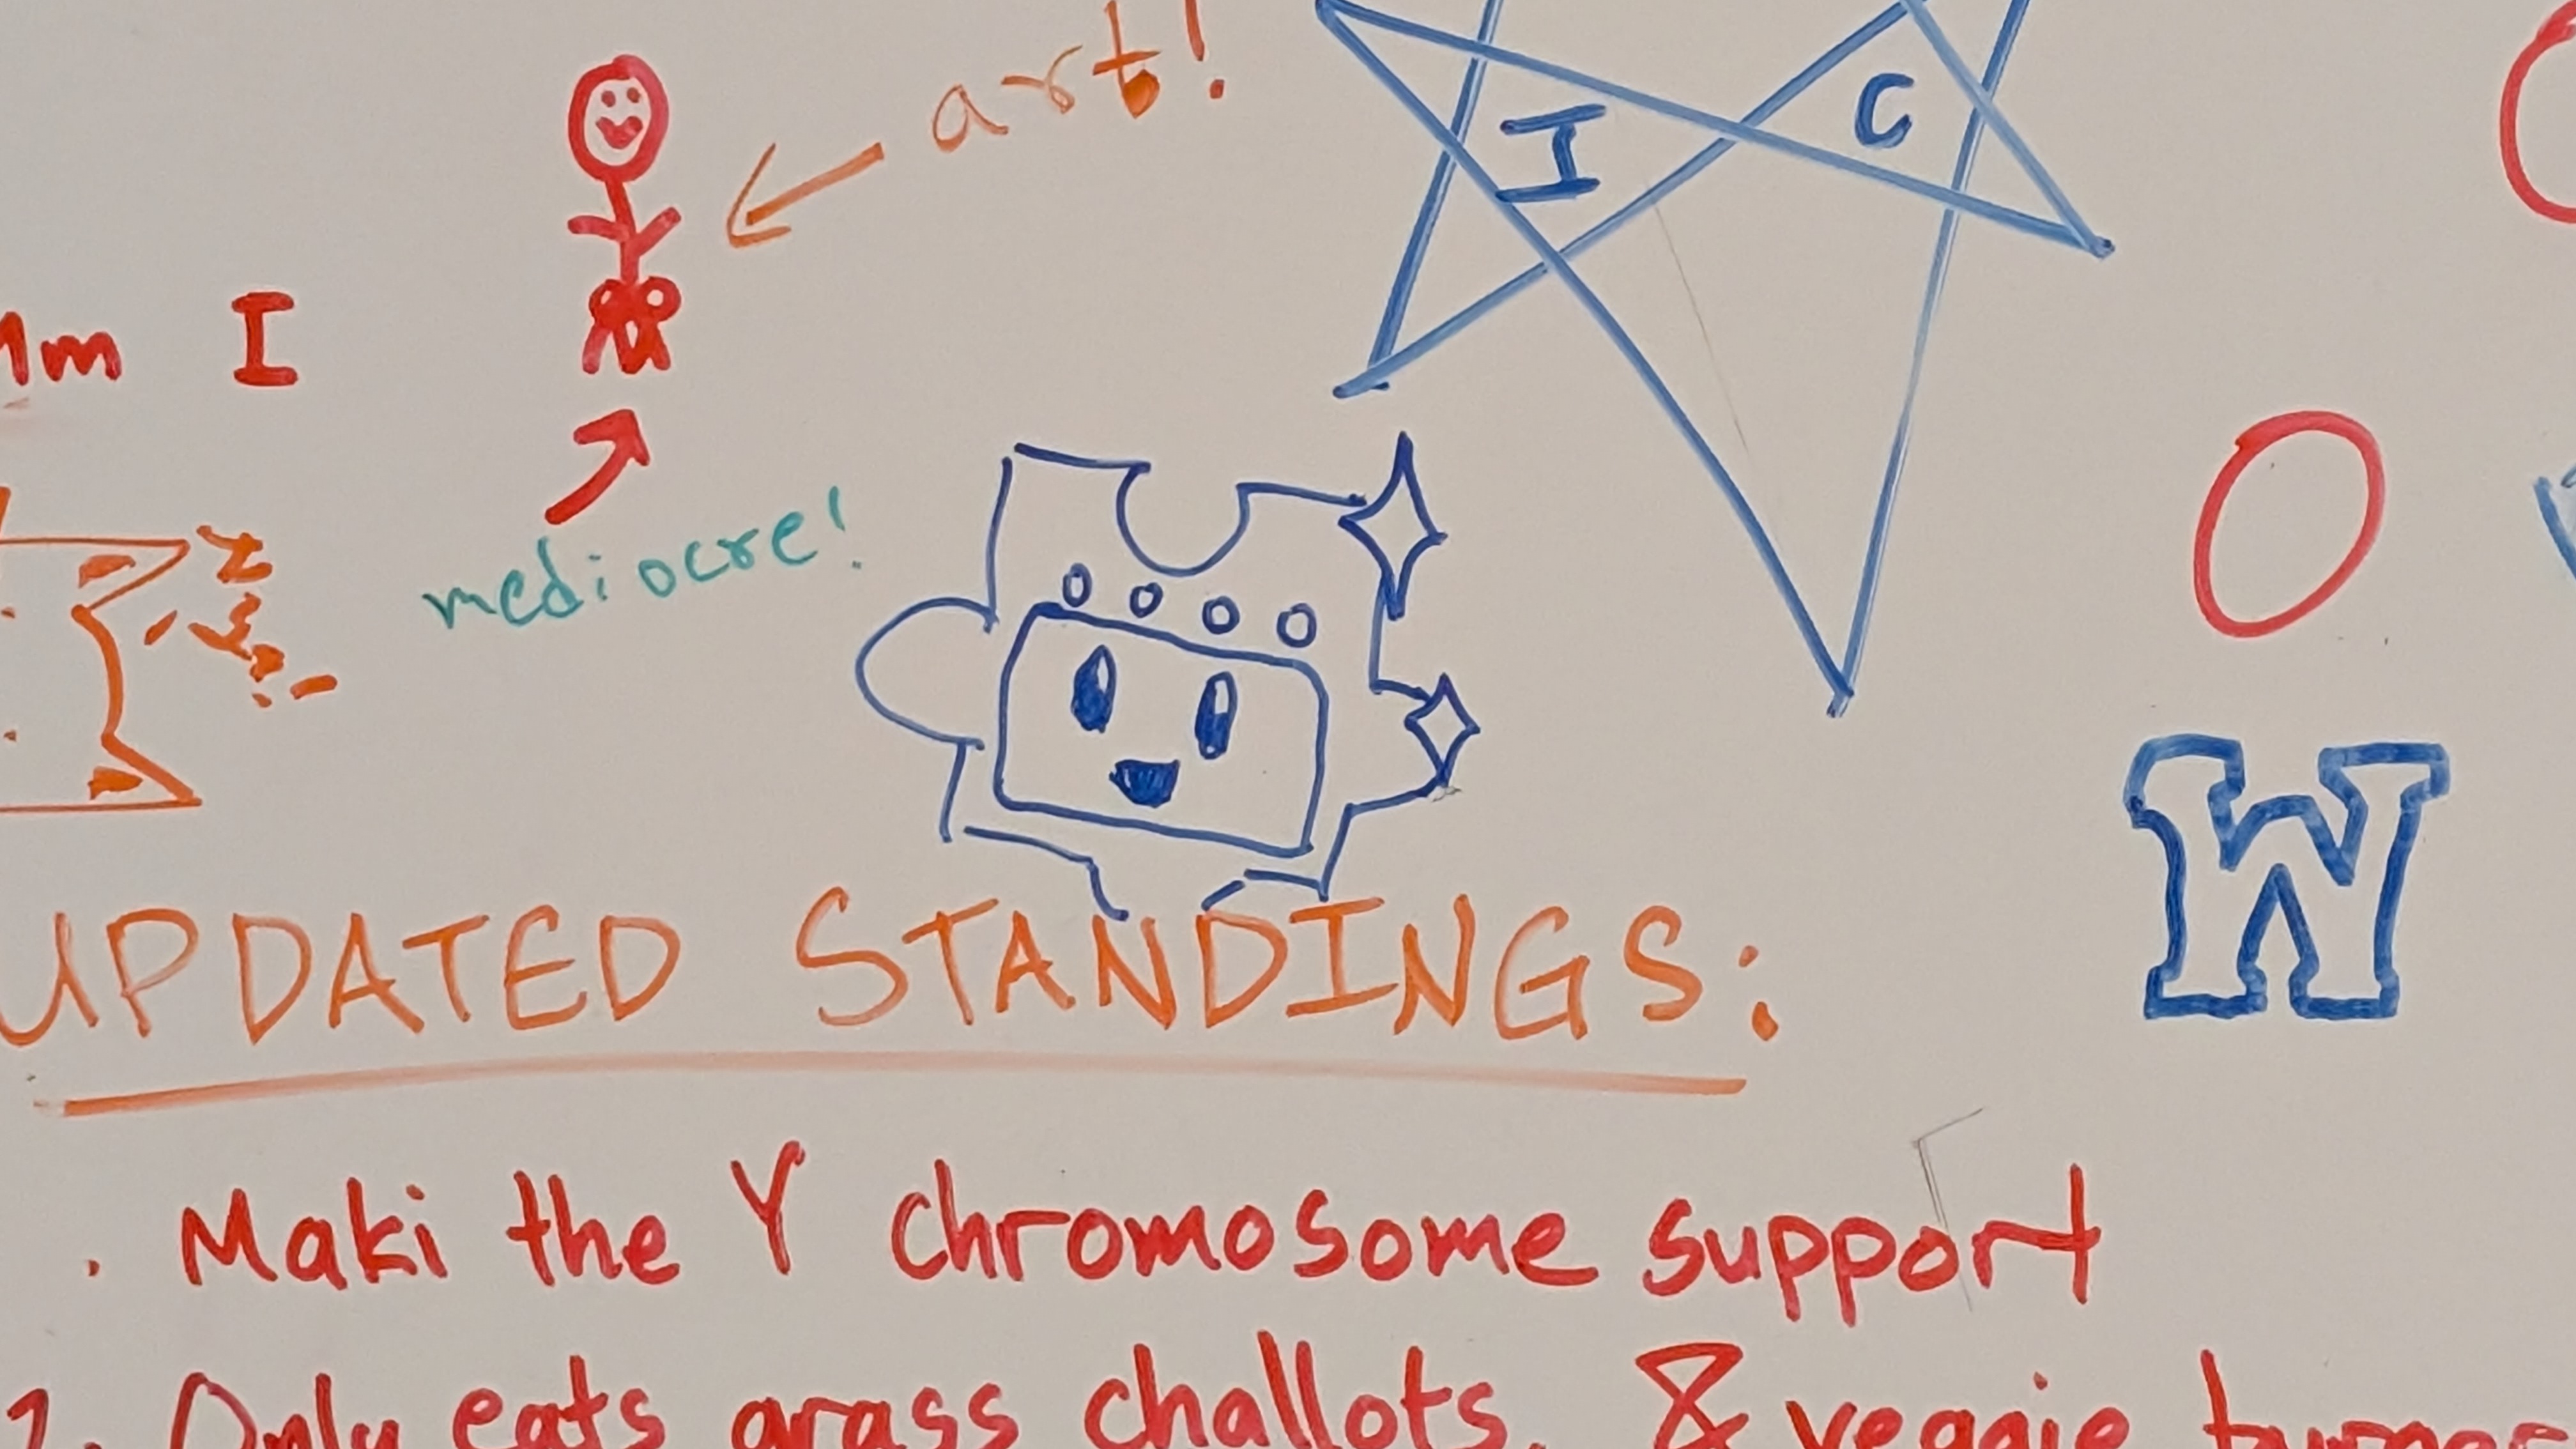 art!
I C
mm I
mediocre!
O
W
UPDATED STANDINGS:
. Maki the Y chromosome support
2. Only eats grass challots, & veggie